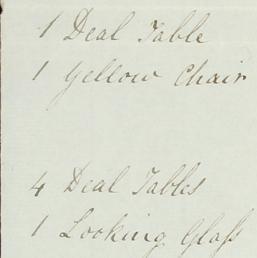 1 Deal Table
1 Yellow Chair
4 Deal Tables
1 Looking Glass